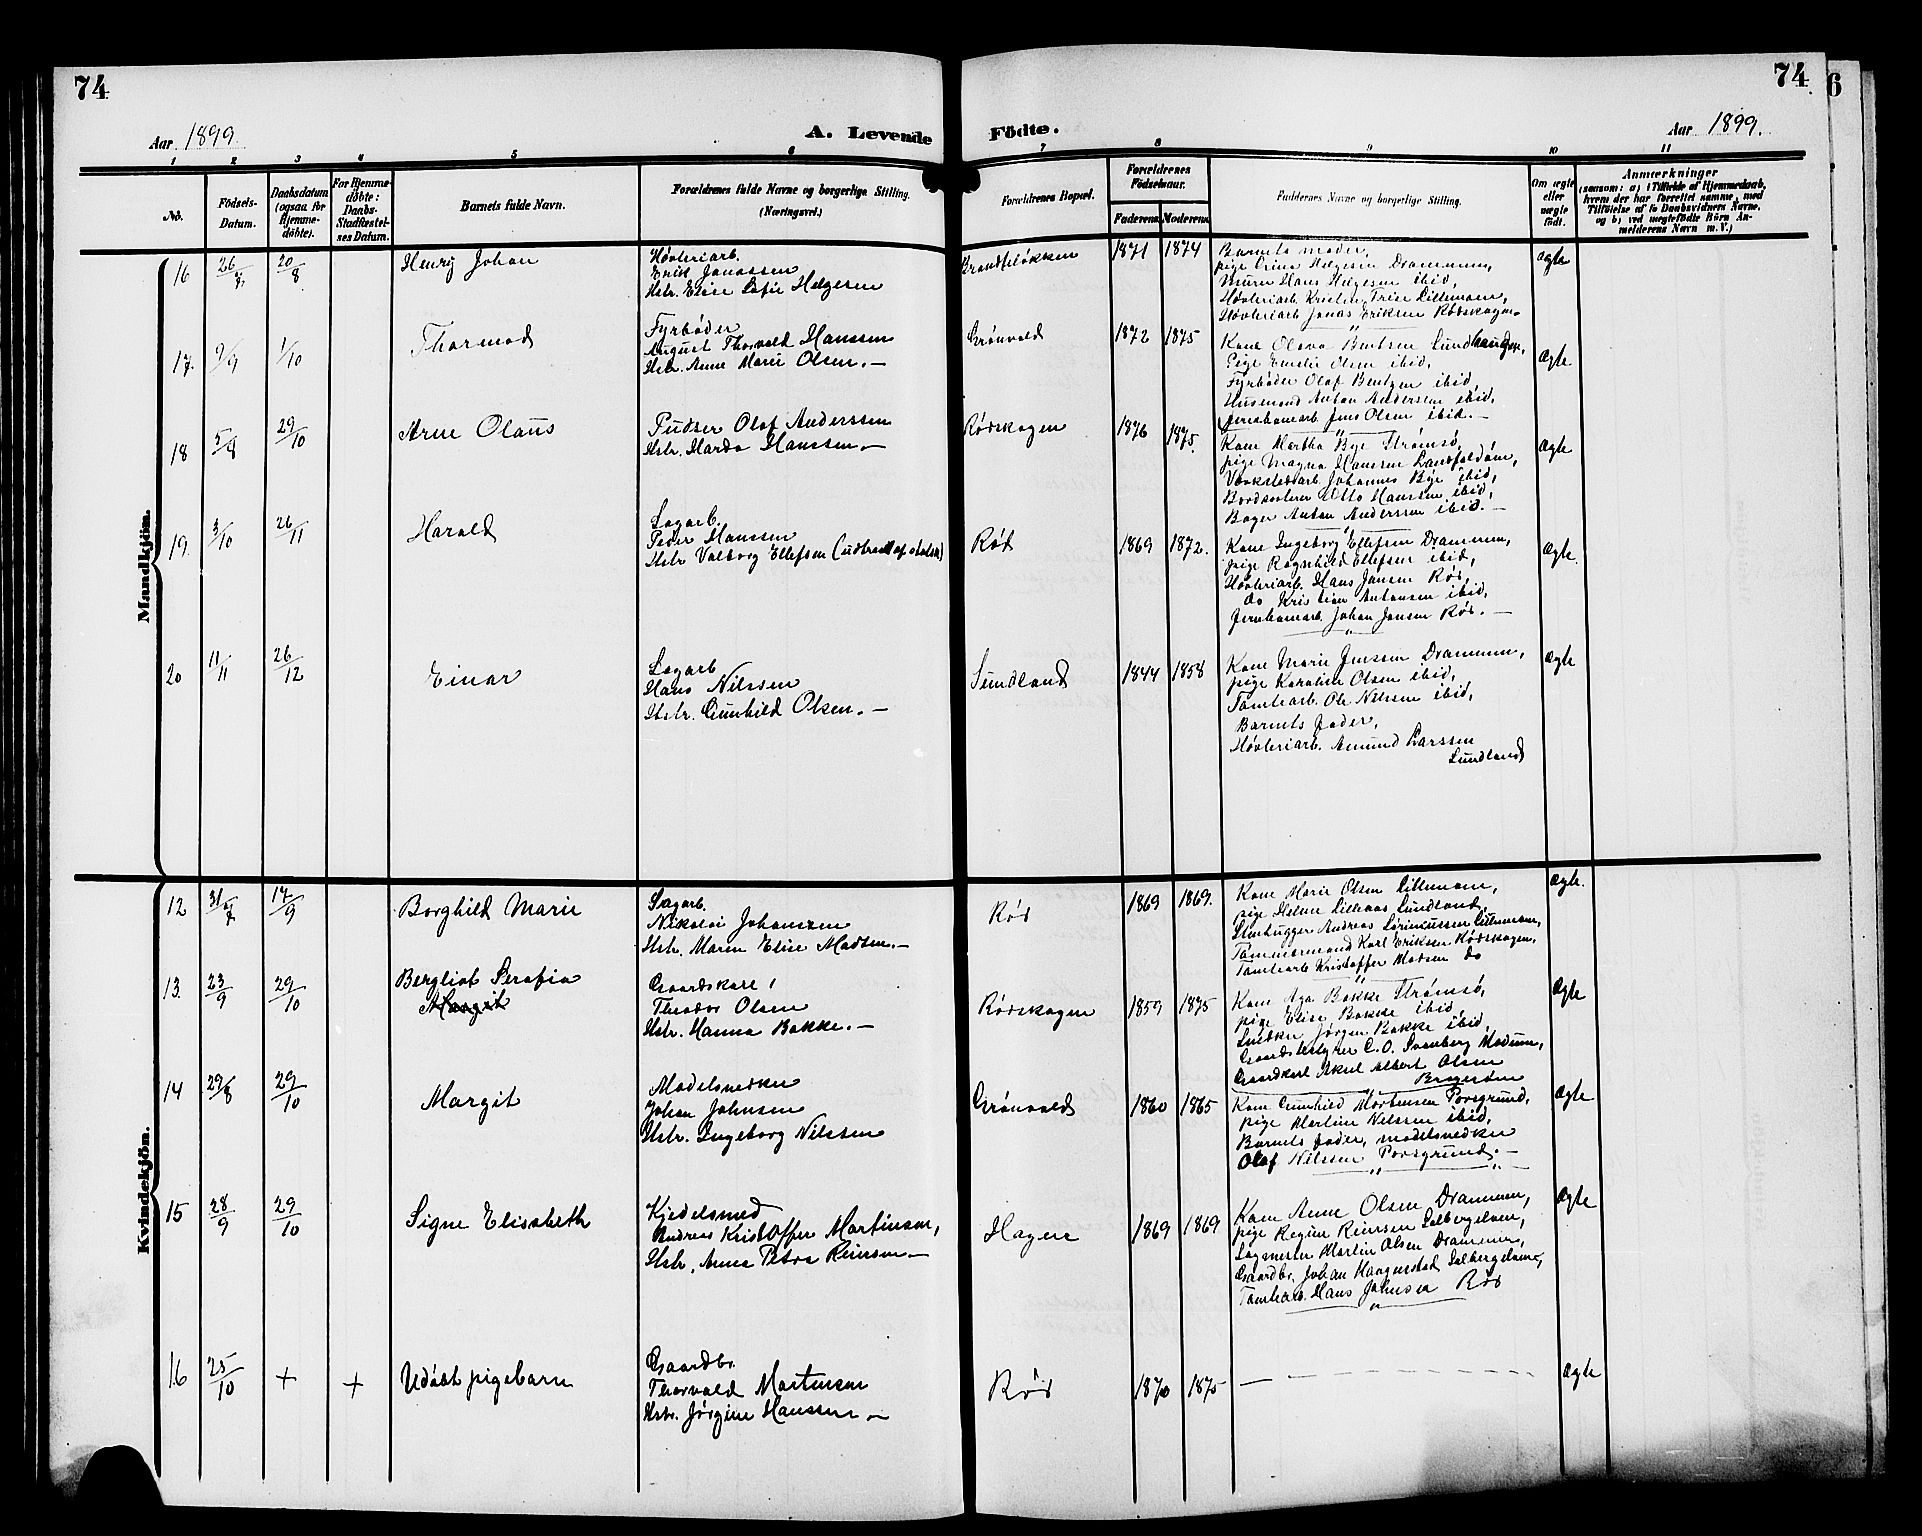 74
74
6
Aar 1899
A. Levende Födte.
Aar 1899.
1 2 3 4 5 6 7 8 9 10 11
No.
Födsels-Datum.
Daabsdatum (ogsaa for Hjemmedöbte).
For Hjemmedöbte: Daabs-Stadfæstelses Datum.
Barnets fulde Navn.
Forældrenes fulde Navne og borgerlige Stilling. (Næringsvei.)
Forældrenes Bopæl.
Forældrenes Födselsaar.
Faderens. Moderens.
Faddernes Navne og borgerlige Stilling.
Om ægte eller uægte födt.
Anmærkninger
(saasom: a) i Tilfælde af Hjemmedaab, hvem der har forrettet samme, med Tilföielse af to Daabsvidners Navne, og b) ved uægtefödte Börn Anmelderens Navn m. V.)
Mandkjön.
16 26/7 20/8 Henry Johan
Høvleriarb.
Erik Jonassen
Hstr. Elise Sofie Helgesen
1871 1874
Barnets moder,
pige Helgesen Drammen,
murer Hans Helgesen ibid,
Høvleriarb. Jonas Eriksen Rødskogen
ægte
17. 9/9 1/10 Thormod
Fyrbøder
August Thorvald Hanssen
Hstr. Anne Marie Olsen. —
Grønvold
1872 1875
Kone Olava Bentsen Sundhaugen,
Pige Emilie Olsen ibid,
Fyrbøder Olaf Bentzen ibid,
Husmand Anton Andersen ibid,
Jernbanearb. Jens Olsen ibid. —
ægte
18 5/8 29/10 Arne Olaus
Pudser Olaf Anderssen
Hstr. Hanssen —
Rødskogen
1876 1875.
Kone Martha Bye Strømsø,
pige Magna Hanssen
Verkstedarb. Johannes Bye ibid,
Bordsorterer Otto Hanssen ibid,
Bager Anton Anderssen ibid. —
ægte
19. 3/10 26/11 Harald
Sagarb.
Peder Hanssen
Hstr Valborg Ellefsen
Rød
1869 1872.
Kone Ingeborg Ellefsen Drammen,
pige Ragnhild Ellefsen ibid,
Høvleriarb. Hans Jansen Rød,
do Kristian Antonsen ibid,
Jernbanearb. Johan Jansen Rød. —
ægte
20 11/11 26/12 Einar
Sagarb
Hans Nilssen
Hstr. Gunhild Olsen. —
Sundland
1844 1858
Kone Marie Jenssen Drammen,
pige Karoline Olsen ibid,
Tomtearb. Ole Nilssen ibid,
Barnets fader,
Høvleriarb. Amund Larssen
Sundland
ægte
Kvindekjön.
12 31/7 17/9 Borghild Marie
Sagarb.
Nikolai Johanssen
Hstr. Maren Elise Madsen. —
Rød
1869 1869.
Kone Marie Olsen
pige Helene Sundland,
Stenhugger Andreas
Tømmermand Karl Eriksen Rødskogen,
Tomtearb Kristoffer Madsen do
ægte.
13. 23/9 29/10 Bergliot Serafia
Margit
Gaardskarl
Theodor Olsen
Hstr. Hanna Bakke. —
Rødskogen
1859 1875
Kone Aga Bakke Strømsø,
pige Elise Bakke ibid,
Snedker Jørgen Bakke ibid,
Gaardsbestyrer C. O. Svanberg Modum,
Gaardkarl Aksel Albert Olsen
Bragerøen
ægte
14 29/8 29/10 Margit
Modelsnedker
Johan Johnsen
Hstr. Ingeborg Nilssen
Grønvold
1860 1865
Kone Gunhild Mortensen Porsgrund,
pige Martine Nilssen ibid,
Barnets fader, modelsnedker
Olaf Nilssen Porsgrund. —
ægte
15 28/9 29/10 Signe Elisabeth
Kjedelsmed
Andreas Kristoffer Martinsen,
Hstr. Anna Petra Reiersen —
Hagen
1869 1869
Kone Anne Olsen Drammen,
pige Regine Reiersen Solbergelven,
Sagmester Martin Olsen Drammen,
Gaardbr. Johan Haagenstad Solbergelven,
Tomtearb. Hans Johnsen Rød
ægte
16 25/10 + + Udøbt pigebarn
Gaardbr.
Thorvald Mortensen
Hstr. Jørgine Hanssen —
Rød
1870 1875
—
ægte